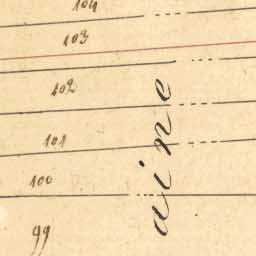 104
103
102
101
100
99
aine